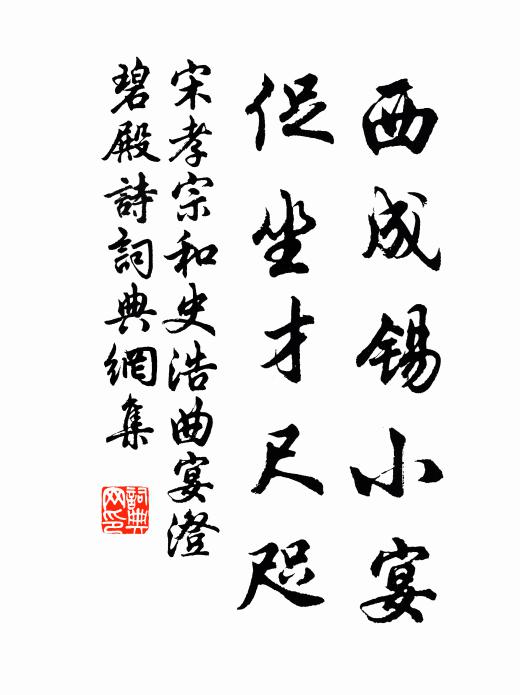 西成錫小宴
促坐才尺咫
宋孝宗和史浩曲宴澄
碧殿詩詞典網集
詞典网印